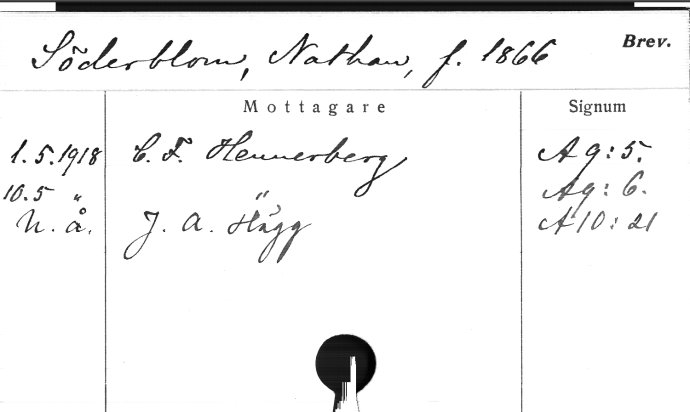 Söderblom, Nathan, f. 1866 Brev.
Mottagare Signum
1.5.1918 C. F. Hennerberg A9:5.
10.5 „ „ A9:6.
U. å. J. A. Hägg A10:21